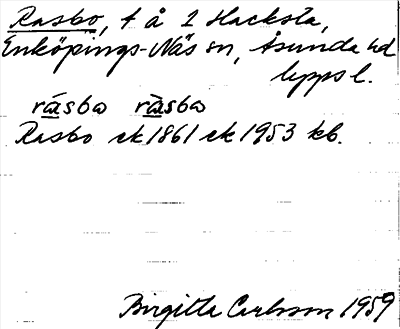 Rasbo, t å 2 Hacksta,
Enköpings-Näs sn, Åsunda hd
Uppsl.
rásbo ràsbo
Rasbo ek 1861 ek 1953 kb.
Birgitta Carlsson 1959